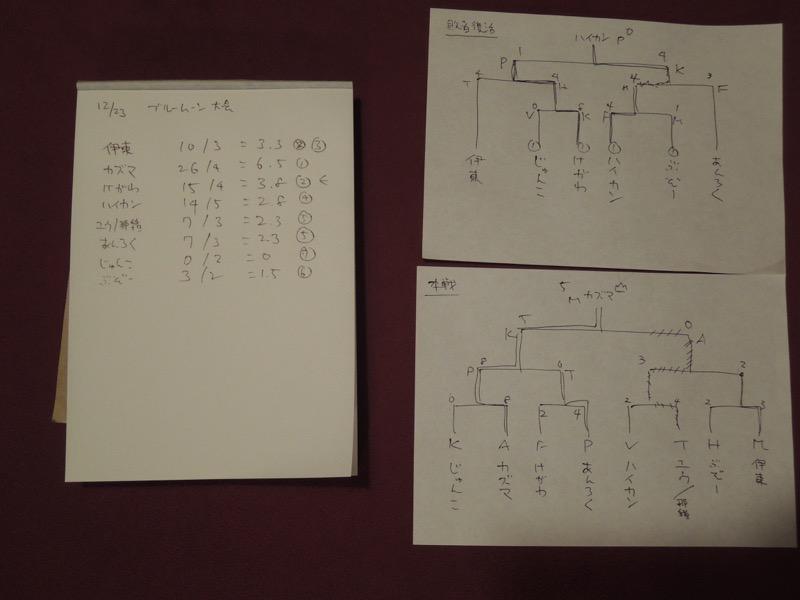 12/23 ブルームーン大会
伊東 10/3 = 3.3 ③
カズマ 26/4 = 6.5 ①
けがわ 15/4 = 3.8 ② ←
ハイカン 14/5 = 2.8 ④
ユウ/ 7/3 = 2.3 ⑤
あんろく 7/3 = 2.3 ⑤
じゅんこ 0/2 = 0 ⑦
ぶぞー 3/2 = 1.5 ⑥
敗者復活
ハイカン P 0
1 4
P K
4 4 4 3
T H F
0 5 4 1
V K F M
① ① ① ①
伊東 じゅんこ けがわ ハイカン ぶぞー あんろく
本戦
5 M カズマ
T 0
K A
8 0 3 2
P T
0 8 2 4 2 4 2 3
K A F P V T H M
じゅんこ カズマ けがわ あんろく ハイカン ユウ/ ぶぞー 伊東